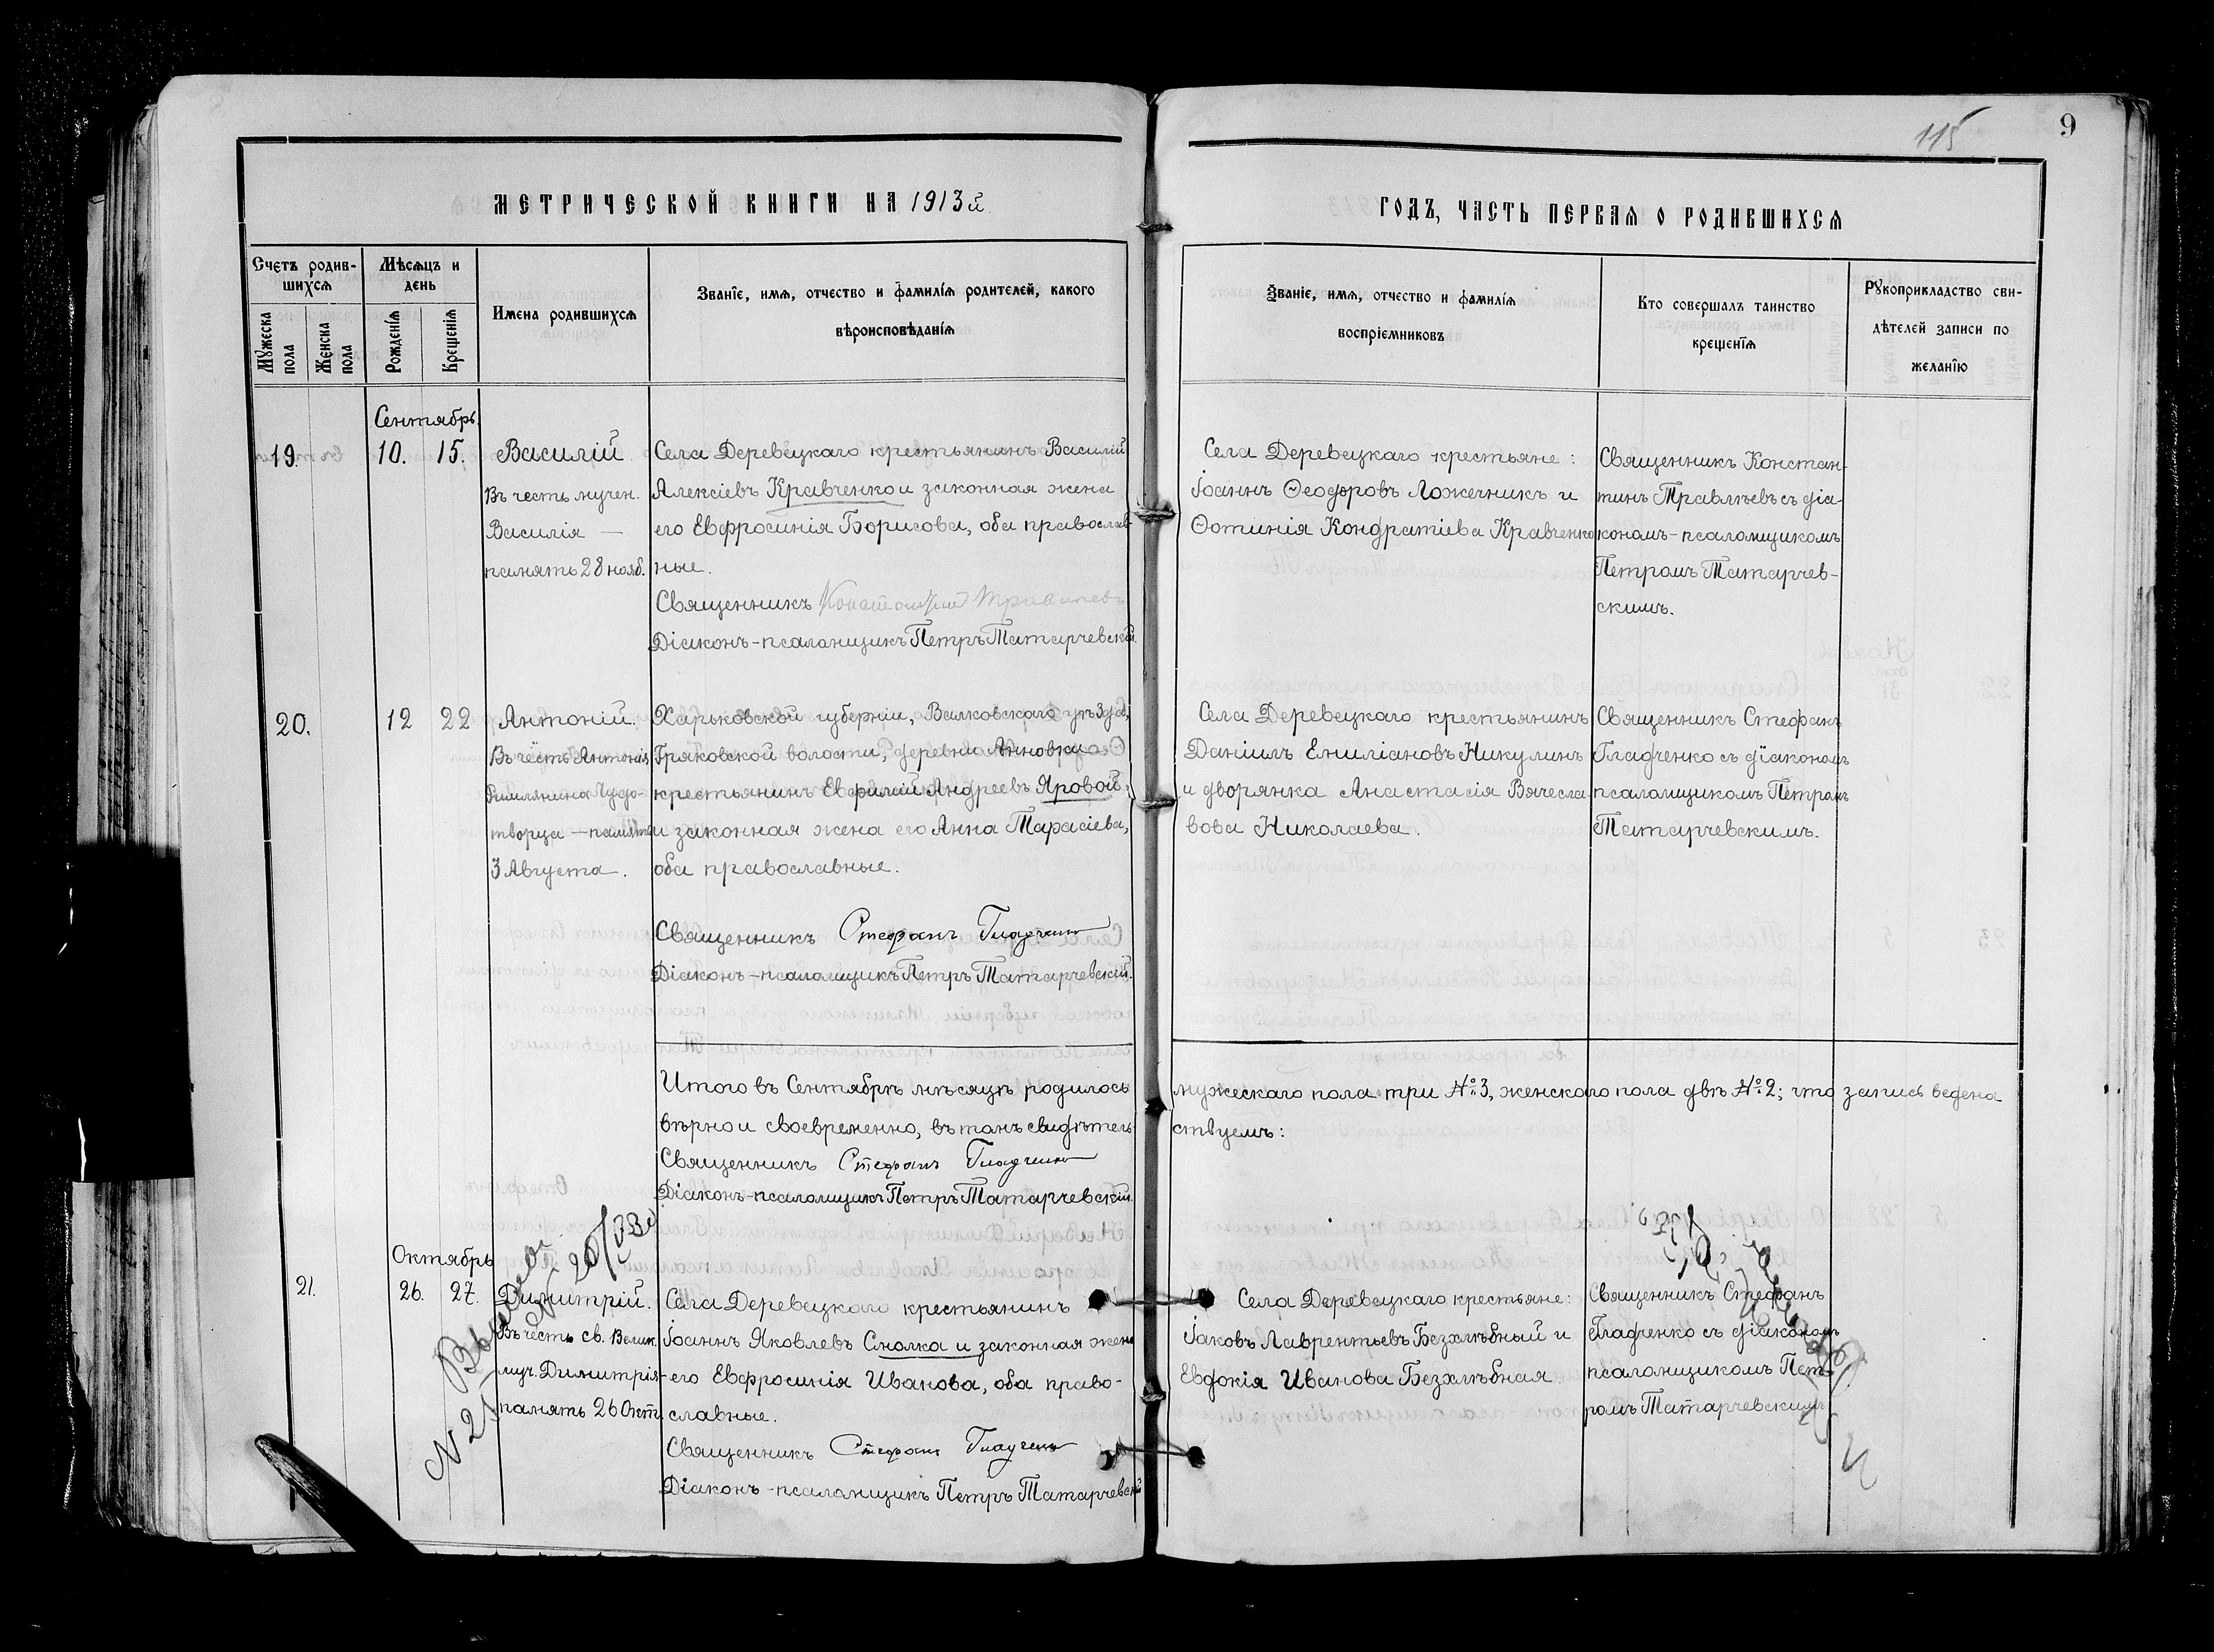 115
9
МЕТРИЧЕСКОЙ КНИГИ НА 1913й
ГОДЪ, ЧАСТЬ ПЕРВАЯ О РОДИВШИХСЯ
Счетъ родив-
шихся
Мужеска пола
Женска пола
Мѣсяцъ и
день
Рожденія
Крещенія
Имена родившихся
Званіе, имя, отчество и фамилія родителей, какого
вѣроисповѣданія
Званіе, имя, отчество и фамилія
воспріемниковъ
Кто совершалъ таинство
крещенія
Рукоприкладство сви-
дѣтелей записи по
желанію
Сентябрь.
19.
10.
15.
Василій
Въ честь мучен.
Василія —
память 28 нояб.
Села Деревецкаго крестьянинъ Василій
Алексіевъ Кравченко и законная жена
его Евфросинія Борисова, оба православ-
ные.
Священникъ Константинъ Травлѣевъ
Діаконъ-псаломщикъ Петръ Татарчевскій.
Села Деревецкаго крестьяне:
Іоаннъ Ѳеодоровъ Ложечникъ и
Ѳотинія Кондратіева Кравченко
Священникъ Констан-
тинъ Травлѣевъ съ діа-
кономъ-псаломщикомъ
Петромъ Татарчев-
скимъ.
20.
12
22
Антоній.
Въ честь Антонія
Римлянина Чудо-
творца — память
3 Августа.
Харьковской губерніи, Валковскаго уѣзда,
Гряковской волости, деревни Анновки
крестьянинъ Евфимій Андреевъ Яровой,
и законная жена его Анна Тарасіева,
оба православные.
Священникъ Стефанъ Гладченко
Діаконъ-псаломщикъ Петръ Татарчевскій.
Села Деревецкаго крестьянинъ
Даніилъ Емиліановъ Никулинъ
и дворянка Анастасія Вячесла-
вова Николаева.
Священникъ Стефанъ
Гладченко съ діакономъ
псаломщикомъ Петромъ
Татарчевскимъ.
Итого въ Сентябрѣ мѣсяцѣ родилось мужескаго пола три № 3, женскаго пола двѣ № 2; что запись ведена
вѣрно и своевременно, въ томъ свидѣтель-
ствуемъ:
Священникъ Стефанъ Гладченко
Діаконъ-псаломщикъ Петръ Татарчевскій.
Октябрь
21.
26.
27.
Димитрій.
Въ честь св. Велик.
муч. Димитрія-
память 26 Окт.
№ 21
Села Деревецкаго крестьянинъ
Іоаннъ Яковлевъ Смолка и законная жена
его Евфросинія Иванова, оба право-
славные.
Священникъ Стефанъ Гладченко
Діаконъ-псаломщикъ Петръ Татарчевскій
Села Деревецкаго крестьяне:
Іаковъ Лаврентьевъ Безхлѣбный и
Евдокія Иванова Безхлѣбная.
Священникъ Стефанъ
Гладченко съ діакономъ
псаломщикомъ Пет-
ромъ Татарчевскимъ